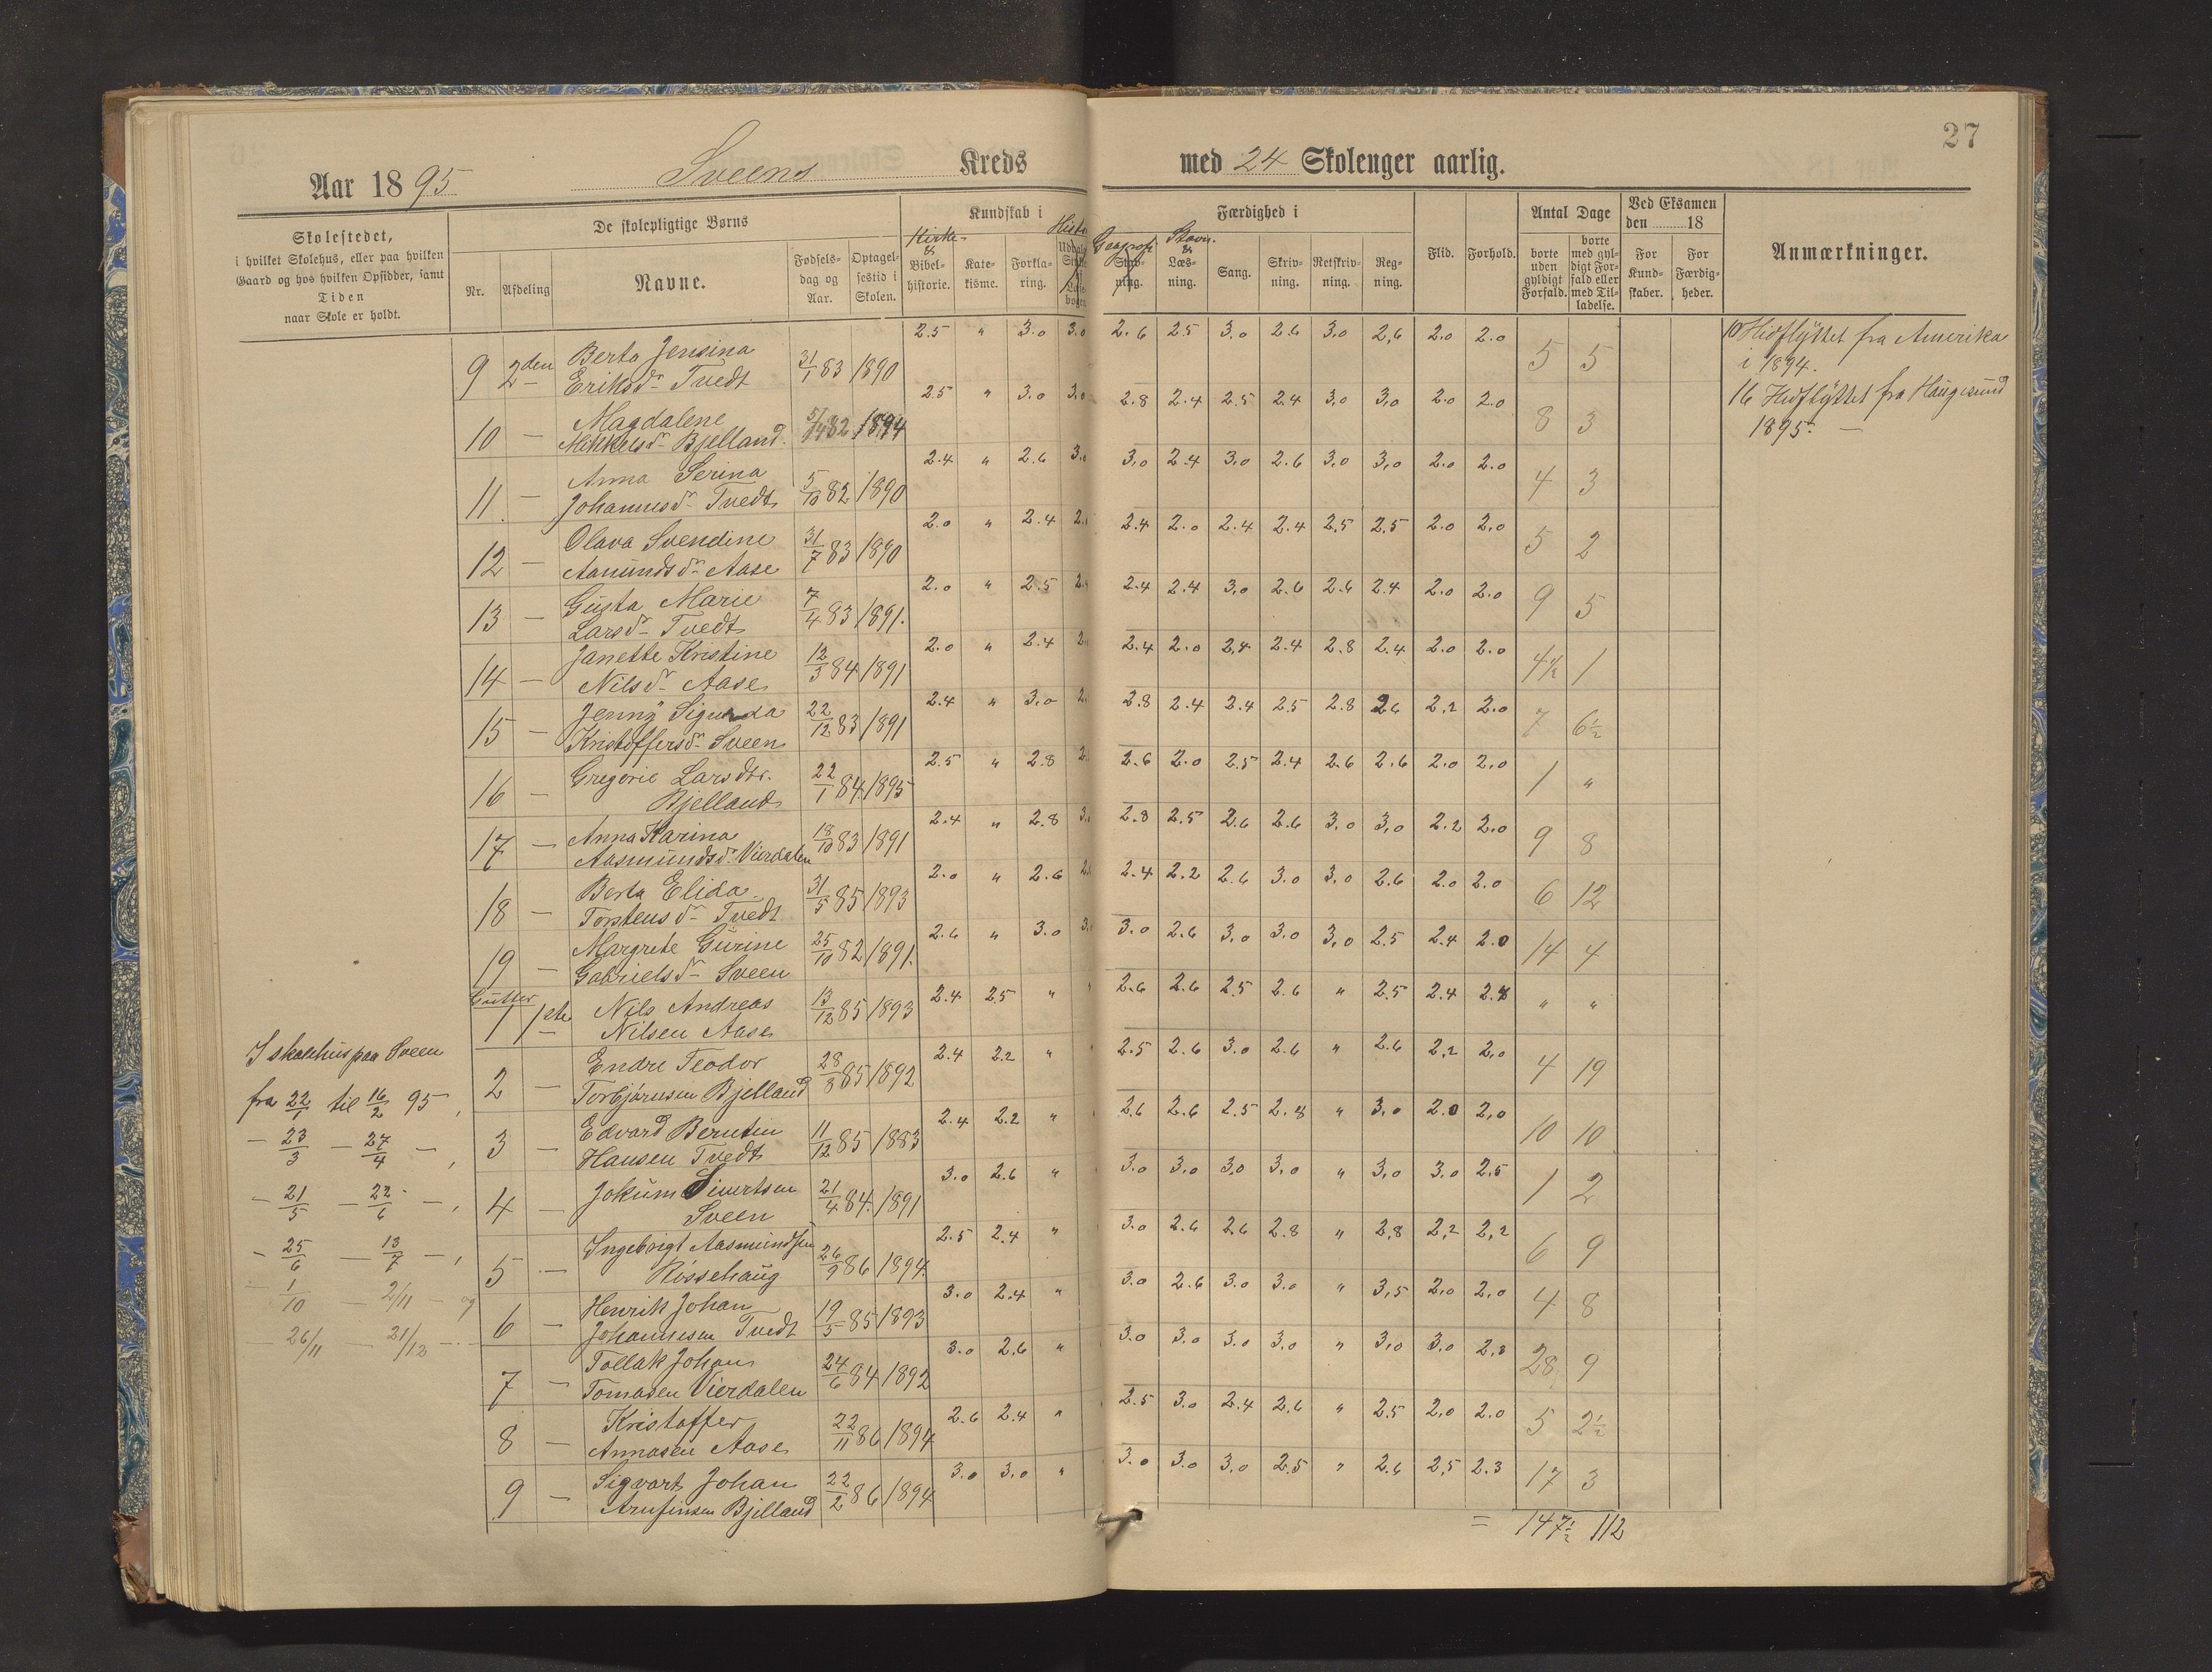 27
Aar 1895 Sveens Kreds med 24 Skolenger aarlig.
Skolestedet,
i hvilket Skolehus, eller paa hvilken
Gaard og hos hvilken Opsidder, samt
Tiden
naar Skole er holdt.
De skolepligtige Børns
Nr. Afdeling Navne. Fødsels-dag og Aar. Optagel-sestid i Skolen.
Kundskab i
Kirke- & Bibel-historie. Kate-kisme. Forkla-ring.
Færdighed i
Geografi Stavn. & Læs-ning. Sang. Skriv-ning. Retskriv-ning. Reg-ning.
Flid. Forhold.
Antal Dage
borte uden gyldigt Forfald. borte med gyl-digt For-fald eller med Til-ladelse.
Ved Eksamen
den 18
For Kund-skaber. For Færdig-heder.
Anmærkninger.
9 2den Berta Jensina Eriksdr Tvedt 31/1 83 1890 2.5 " 3.0 3.0 2.6 2.5 3.0 2.6 3.0 2.6 2.0 2.0 5 5
10 — Magdalene Mikkelsdr Bjelland 5/4 82 1894 2.5 " 3.0 3.0 2.8 2.4 2.5 2.4 3.0 3.0 2.0 2.0 8 3
11 — Anna Serina Johannesdr Tvedt 5/10 82 1890 2.4 " 2.6 3.0 3.0 2.4 3.0 2.6 3.0 3.0 2.0 2.0 4 3
12 — Olava Svendine Aamundsdr Aase 31/7 83 1890 2.0 " 2.4 2.4 2.0 2.4 2.4 2.5 2.5 2.0 2.0 5 2
13 — Gusta Marie Larsdr Tvedt 7/4 83 1891. 2.0 " 2.5 2.4 2.4 3.0 2.6 2.6 2.4 2.0 2.0 9 5
14 — Janette Kristine Nilsdr Aase 12/3 84 1891 2.0 " 2.4 2.4 2.0 2.4 2.4 2.8 2.4 2.0 2.0 4½ 1
15 — Jenny Sigunda Kristoffersdr Sveen 22/12 83 1891 2.4 " 3.0 2.8 2.4 2.4 2.5 2.8 2.6 2.2 2.0 7 6½
16 — Gregorie Larsdtr. Bjelland 22/1 84 1895 2.5 " 2.8 2.6 2.0 2.5 2.4 2.6 2.6 2.0 2.0 1 "
17 — Anna Karina Aasmundsdr. Vierdalen 18/10 83 1891 2.4 " 2.8 2.8 2.5 2.6 2.6 3.0 3.0 2.2 2.0 9 8
18 — Berta Elida Torstensdr Tvedt 31/5 85 1893 2.0 " 2.6 2.4 2.2 2.6 3.0 3.0 2.6 2.0 2.0 6 12
19 — Margrete Gurine Gabrielsdr Sveen 25/10 82 1891. 2.6 " 3.0 3.0 2.6 3.0 3.0 3.0 2.5 2.4 2.0 14 4
Gutter
1 1ste Nils Andreas Nilsen Aase 13/12 85 1893 2.4 2.5 " 2.6 2.6 2.5 2.6 " 2.5 2.4 " "
2 — Endre Teodor Torbjørnsen Bjelland 28/8 85 1892 2.4 2.2 " 2.5 2.6 3.0 2.6 " 2.6 2.2 2.0 4 19
3 — Edvard Berntin Hansen Tvedt 11/12 85 1883 2.4 2.2 " 2.6 2.6 2.5 2.8 " 3.0 2.0 2.0 10 10
4 — Jokum Sivertsen Sveen 21/4 84. 1891 3.0 2.6 " 3.0 3.0 3.0 3.0 " 3.0 3.0 2.5 1 2
5 — Ingebrigt Aasmundsen Røssehaug 26/9 86 1894. 2.5 2.4 " 3.0 2.6 2.6 2.8 " 2.8 2.2 2.2 6 9
6 — Henrik Johan Johannesen Tvedt 19/5 85 1893 3.0 2.4 " 3.0 2.6 3.0 3.0 " 3.5 2.0 2.0 4 8
7 — Tollak Johan Tomasen Vierdalen 24/6 84 1892 3.0 2.6 " 3.0 3.0 3.0 3.0 " 3.0 3.0 28 9
8 — Kristoffer Annasen Aase 22/11 86 1894 2.6 2.4 " 2.5 3.0 2.4 2.6 " 2.5 2.0 2.0 5 2½
9 — Sigvart Johan Arnfinsen Bjelland 22/2 86 1894 3.0 3.0 " 3.0 3.0 3.0 2.5 " 2.6 2.5 2.3 17 3
= 147½ 112
I skolehus paa Sveen
fra 22/1 til 16/2 95,
— 23/3 — 27/4 —,
— 21/5 — 22/6 —,
— 25/6 — 13/7 —,
— 1/10 — 2/11 — og
— 26/11 — 21/12 —.
10 Hidflyttet fra Amerika
i 1894.
16 Hidflyttet fra Haugesund
1895. —